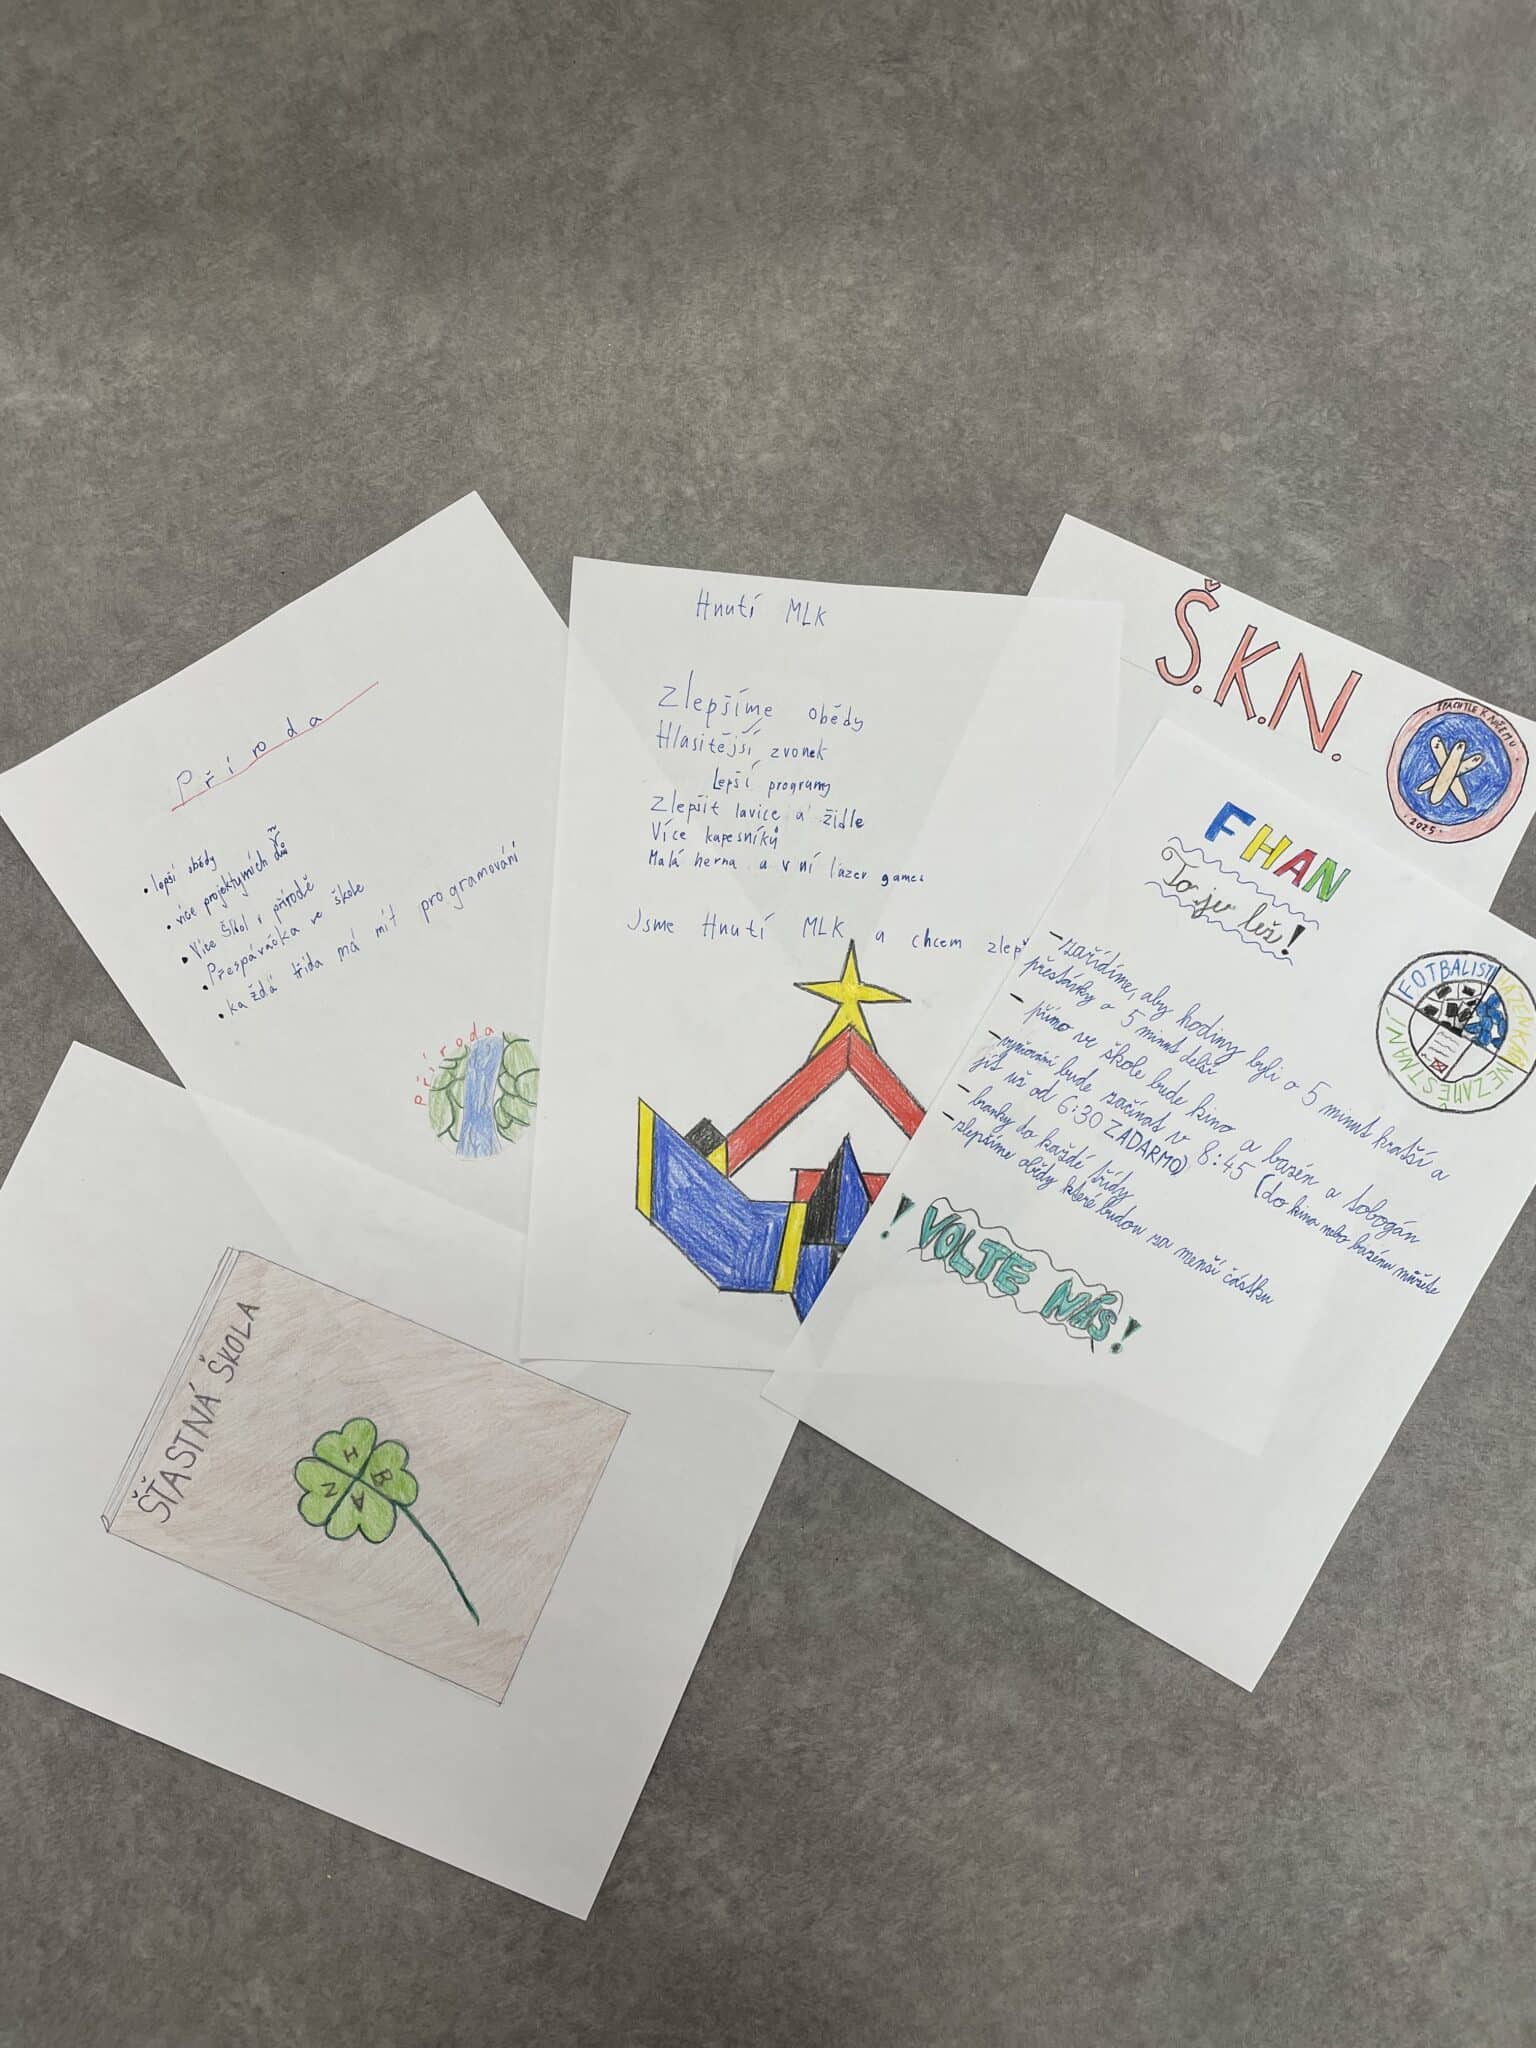 Příroda
• lepší obědy
• více projektymích dňů
• Více Škol v přírodě
• Přespáváčka ve škole
• každá třída má mít programování
Příroda
Hnutí MLK
Zlepšíme obědy
Hlasitější zvonek
Lepší programy
Zlepšit lavice a židle
Více kapesníků
Malá herna a v ní lazer games
Jsme Hnutí MLK a chcem zlepš
Š.K.N.
ŠPACHTLE K NIČEMU
· 2025 ·
FHAN
To je lež!
– zařídíme, aby hodiny byli o 5 minut kratší a
přestávky o 5 minut delší
– přímo ve škole bude kino a bazén a tobogán
– vyučování bude začínat v 8:45 (do kina nebo bazénu můžete
jít už od 6:30 ZADARMO)
– branky do každé třídy
– zlepšíme obědy které budou za menší částku
! VOLTE NÁS !
FOTBALISTI
NEZAMĚSTNANÝ
ŠŤASTNÁ ŠKOLA
H
B
A
N